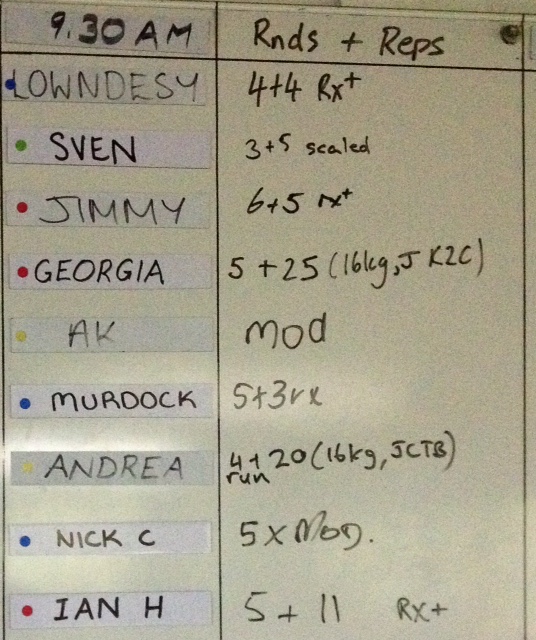 9.30 AM Rnds + Reps
LOWNDESY 4+4 Rx+
SVEN 3+5 scaled
JIMMY 6+5 rx+
GEORGIA 5 +25 (16kg, J K2C)
AK mod
MURDOCK 5+3rx
ANDREA 4+20 (16kg, JCTB)
run
NICK C 5 x MOD.
IAN H 5 + 11 Rx+